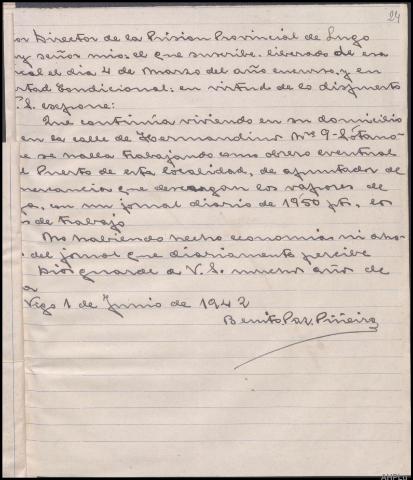 24
or Director de la Prision Provincial de Lugo
y señor mio: el que suscribe liberado de esa
el dia 4 de Marzo del año encurso, y en
rtad Condicional: en virtud de lo dispuesto
S. expone:
Que continua viviendo en su domicilio
en la calle de Hermandino Nº 9-Sótano-
e se halla trabajando como obrero eventual
l Puerto de esta localidad, de apuntador de
mercancia que descargan los vapores de
a, con un jornal diario de 1950 pts, los
s de trabajo
No habiendo hecho economias ni aho-
del jornal que diariamente percibe
Dios guarde a V.S. muchos años de
a
Vigo 1 de Junio de 1942
Benito Paz Piñeiro